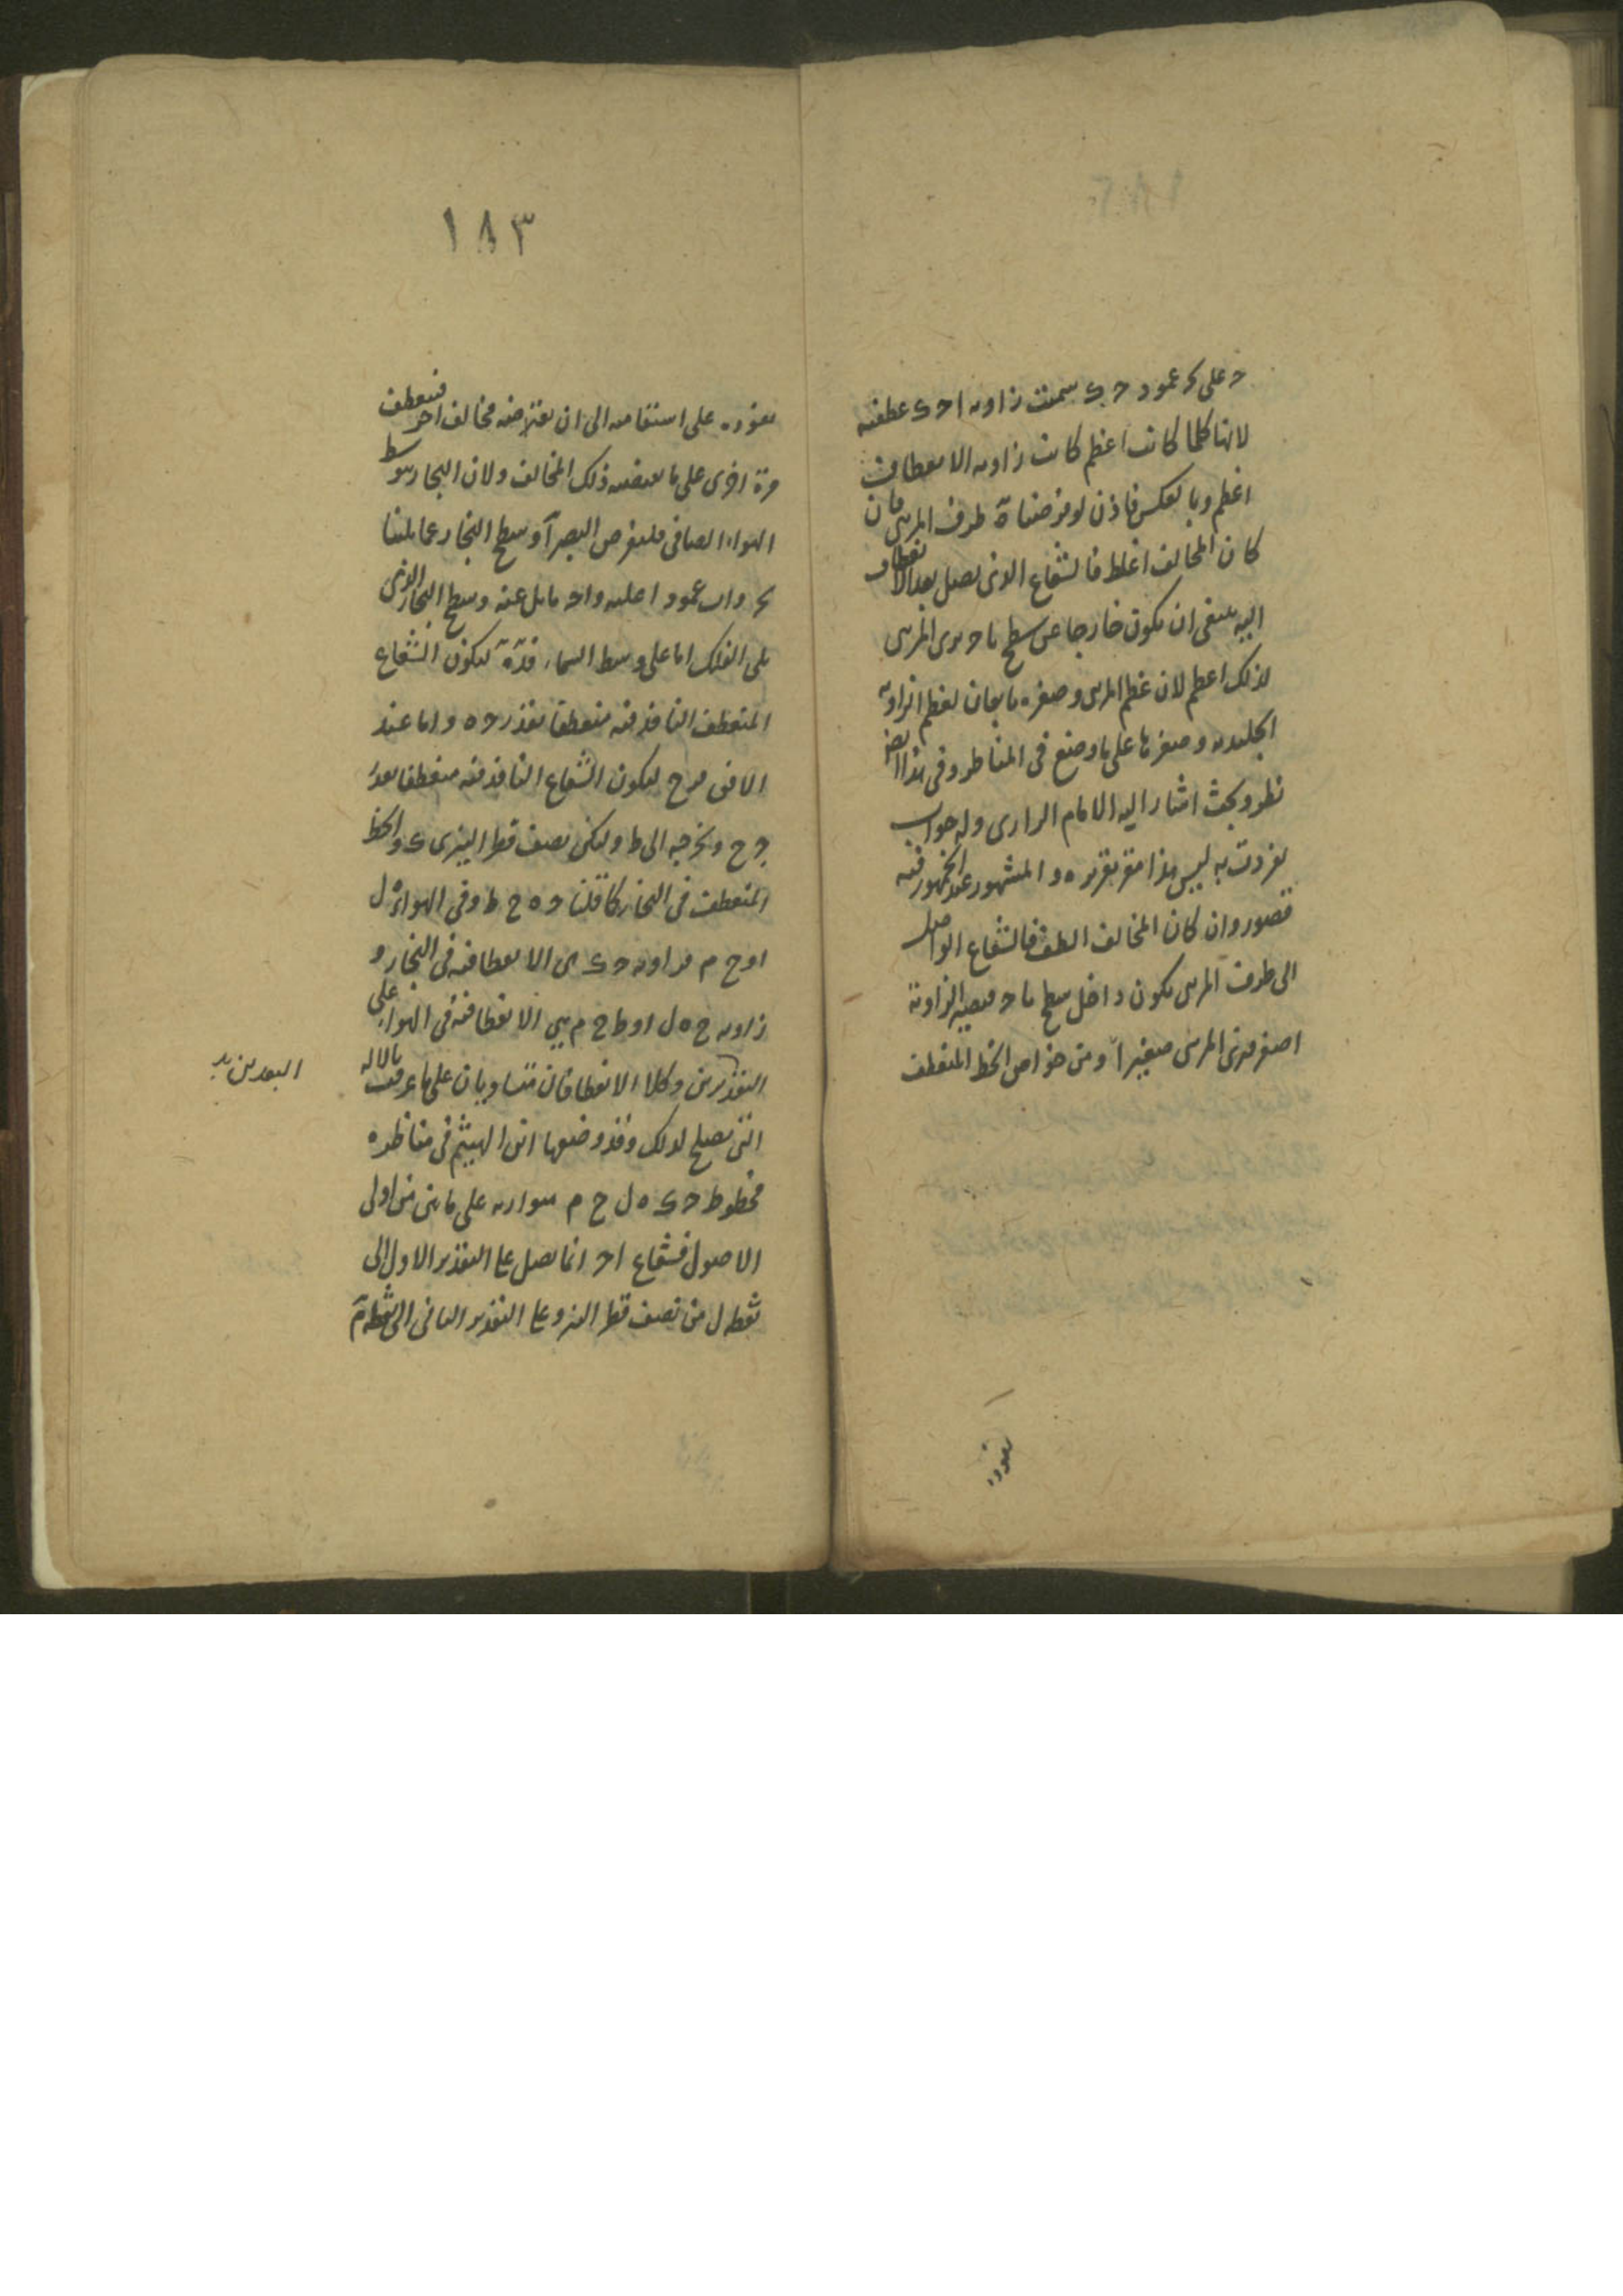 ح على ﺣ عمود ح ى سمت زاويه ا ح ى عطفيه
لانها كلما كانت اعظم كانت زاويه الانعطاف
اعظم وبالعكس فاذن لو فرضناه طرف المرئى فان
كان المخالف اغلظ فالشعاع الذى يصل بعد الانعطاف
اليه ينبغى ان يكون خارجا عن سطح ا ح يرى المرئى
لذلك اعظم لان عظم المرئى وصغره تابعان لعظم الزاويه
الجليديه وصغرها على ما وضع فى المناظر وفى هذا
نظر وبحث اشار اليه الامام الرازى وله جواب
تفردت به ليس هذا مقر تقريره والمشهور عند الجمهور فيه
قصور وان كان المخالف الطف فالشعاع الواصل
الى طرف المرئى يكون داخل سطح ا ح فيصير الزاوية
اصغر فيرى المرئى صغيراً ومن خواص الخط المنعطف
نفوذه
١٨٣
نفوذه على استقامه الى ان يعترضه مخالف اخر فينعطف
مرة اخرى على ما يقتضيه ذلك المخالف ولان البخار يتوسط
الهواء الصافى فليفرض البصر آ وسطح البخار مما يلينا
ﺣ و ا ب عمودا عليه و ا ح مايل عنه وسطح البخار الذى
يلى الفلك اما على وسط السماء فدّه ليكون الشعاع
المنعطف النافذ فيه منعطفا بقدر ح ه واما عند
الافق فرح ليكون الشعاع النافذ فيه منعطفا بعد
ح ح ونخرجه الى ط وليكن نصف قطر النير ى ى والخط
المنعطف فى البخار كما قلنا ح ه ح ط وفى الهواء ه ل
او ح م فزاويه ح ى هى الانعطافيه فى البخار و
زاويه ح ه ل او ط ح م هى الانعطافيه فى الهواء على
التقديرين وكلا الانعطافان متساويان على ما عرفت بالاله
البعدين يد
التى يصلح لذلك وقد وضعها ابن الهيثم فى مناظره
فخطوط ح ى ه ل ح م متوازيه على ما بين من اولى
الاصول فشعاع ا ح انما يصل على التقدير الاول الى
نقطه ل من نصف قطر النير وعلى التقدير الثانى الى نقطة م